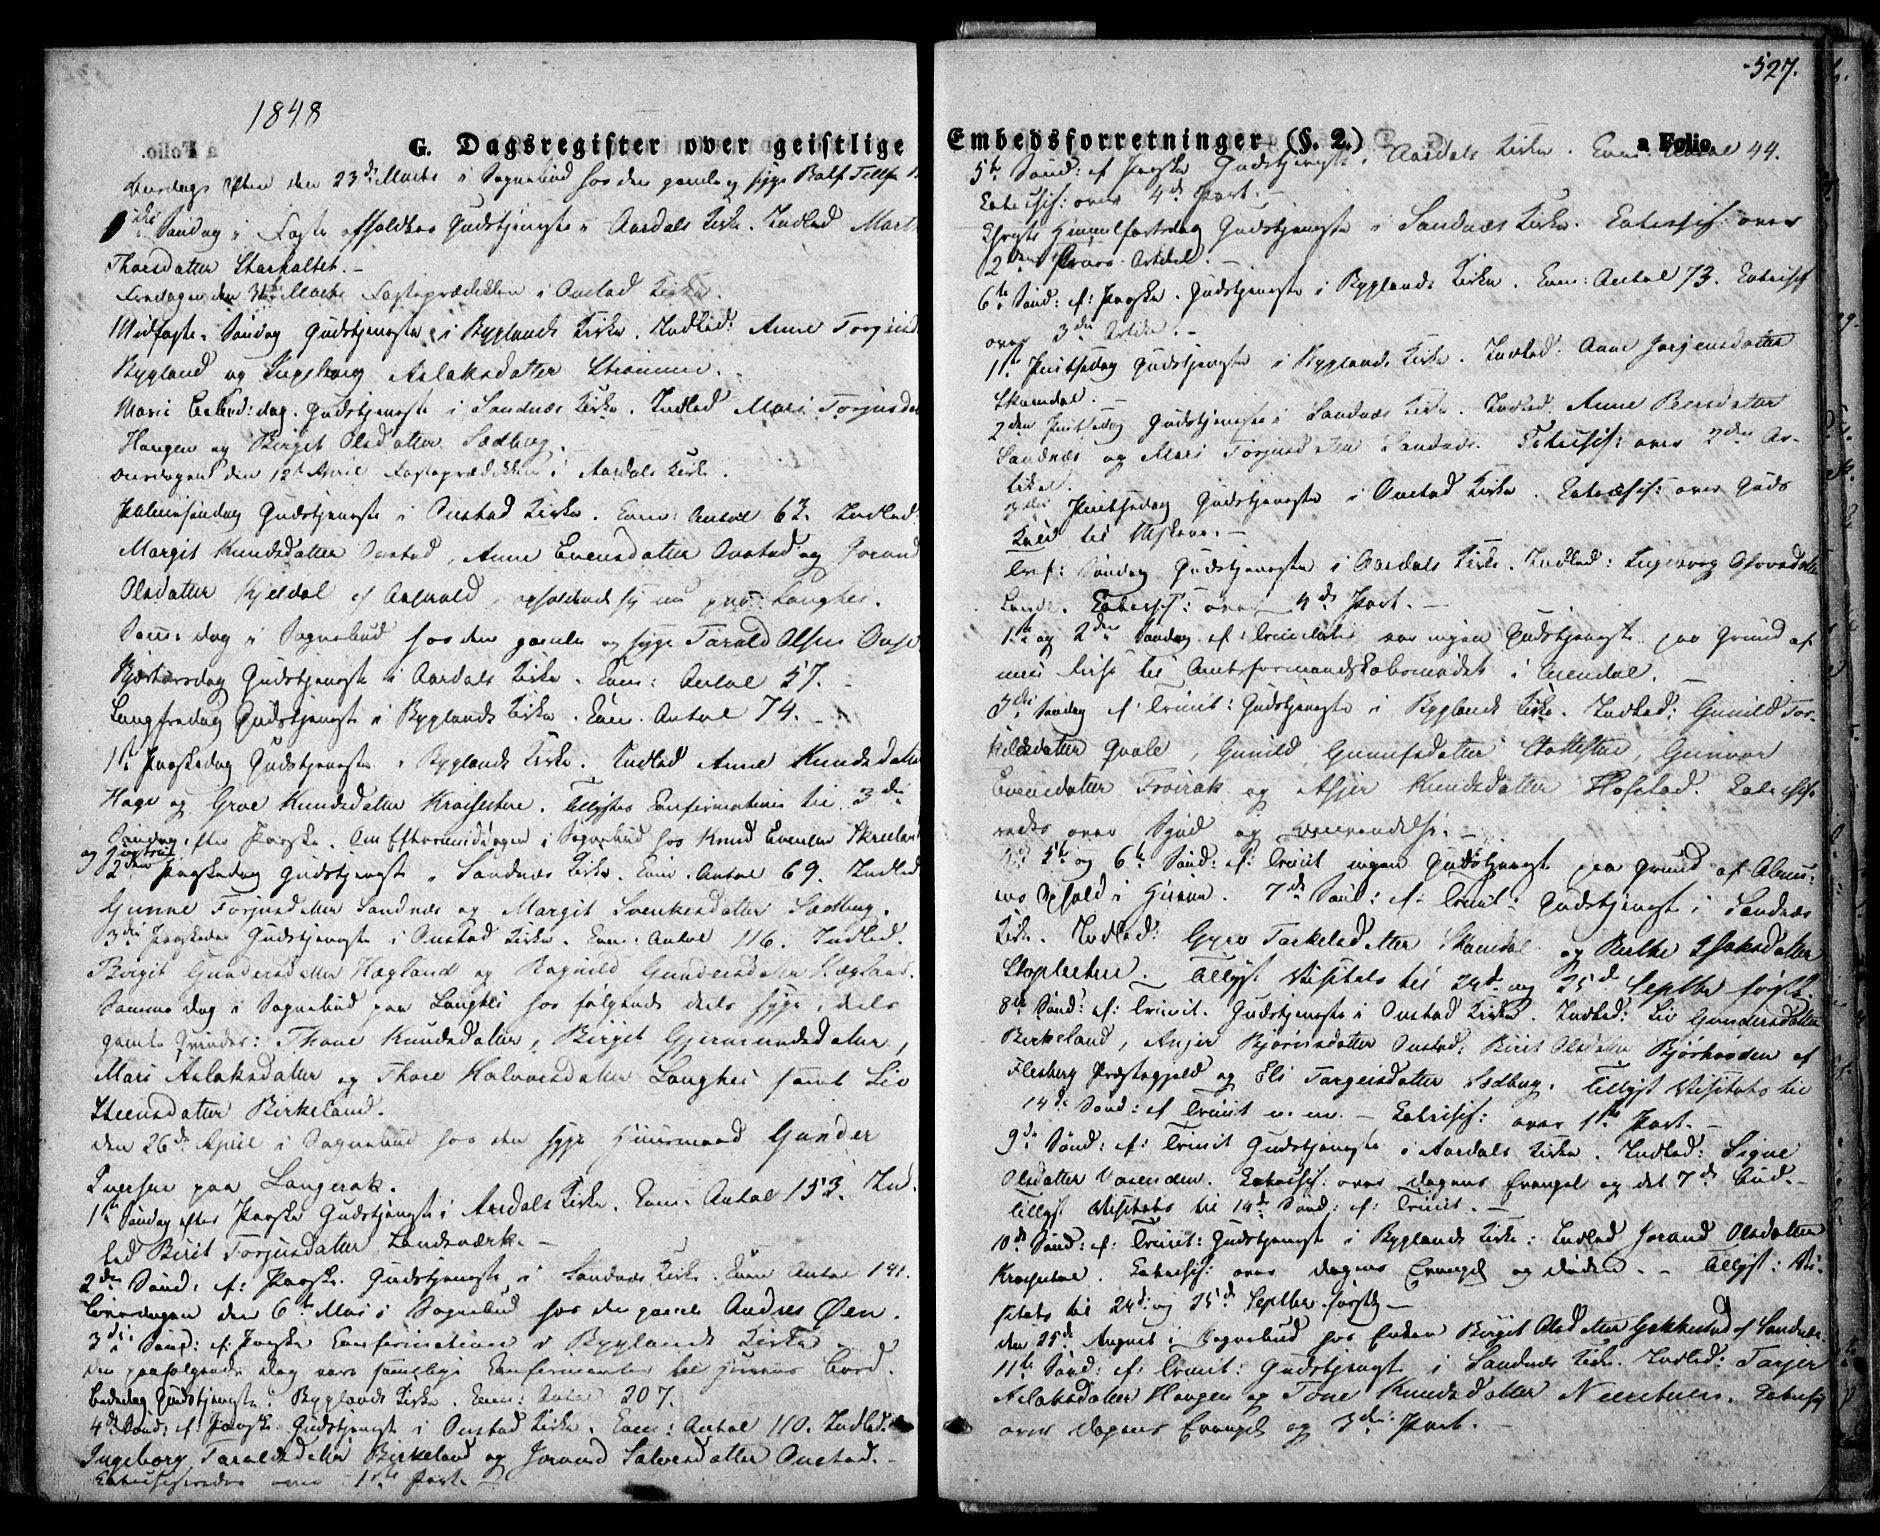 527.
1848
G. Dagsregister over geistlige Embedsforretninger (§. 2.) a Folio.
Onsdags Aften den 23de Marts i Sognebud hos den gamle og syge Rolf
Søndag i Faste afholdtes Gudstjeneste i Aardals Kirke. Indled
Thorsdatter
Fredagen den 31 Marts Fasteprædiken i Onstad Kirke.
Midfaste-Søndag Gudstjeneste i Byglands Kirke. Indled: Anne
Bygland og Ingeborg Aslaksdatter Strømme.
Marie Bebud: dag. Gudstjeneste i Sandnæs Kirke. Indled Mari
Haugen og Birgit Olsdatter Sædberg.
Onsdagen den 12te April Fasteprædiken i Aardals Kirke.
Palmesøndag Gudstjeneste i Onstad Kirke. Com: Antal 63. Indled:
Margit Knudsdatter Onstad, Anne Evensdatter Onstad og Jorand
Olsdatter Kjeldal af opholdende sig nu paa Langhei.
Sam: dag i Sognebud hos den gamle og syge Tarald Olsen
Skjærtorsdag Gudstjeneste i Aardals Kirke. Com: Antal 57.
Langfredag Gudstjeneste i Byglands Kirke. Com. Antal 74.
1ste Paaskedag Gudstjeneste i Byglands Kirke. Indled Anne Knudsdatter
Hage og Groe Knudsdatter Tillystes Confirmationen til 3die
Søndag efter Paaske. Om Eftermiddagen i Sognebud hos Knud Evensen
og Hustru
2den Paaskedag Gudstjeneste i Sandnæs Kirke. Com. Antal 69. Indled
Gunne Torjusdatter Sandnæs og Margit Svenkesdatter Sædberg.
3die Paaskedag Gudstjeneste i Onstad Kirke. Com: Antal 116. Indled.
Birgit Gundersdatter Hægland og Ragnild Gundersdatter Hægland.
Samme dag i Sognebud paa Langhei hos følgende dels syge, dels
gamle Qvinder: Thone Knudsdatter, Birgit Gjermundsdatter,
Mari Aslaksdatter og Thore Halvorsdatter Langhei samt Liv
Steensdatter Birkeland.
den 26de April i Sognebud hos den syge Huusmand Gunder
Iversen paa Langerak.
1ste Søndag efter Paaske Gudstjeneste i Aardals Kirke. Com. Antal 153. Ind-
led Birit Torjusdatter Landsværk.
2den Sønd: ef: Paaske. Gudstjeneste i Sandnæs Kirke. Com Antal 141.
Løverdagen den 6te Mai i Sognebud hos den gamle Andres Øen.
3die Sønd: ef: Paaske Confirmation i Byglands Kirke
den paafølgende dag vare samtlige Confirmanter til Herrens Bord.
Bededag Gudstjeneste i Byglands Kirke. Com: Antal 207.
4de Sønd: ef: Paaske Gudstjeneste i Onstad Kirke. Com: Antal 110. Indled:
Ingeborg Taraldsdatter Birkeland og Jorand Salvesdatter Onstad.
Catechiseredes over 1ste Part.
5te Sønd: ef Paaske Gudstjeneste i Aardals Kirke. Com: Antal 44.
Catechis: over 4de Part.
Christi Himmelfartsdag Gudstjeneste i Sandnæs Kirke. Catechis: over
2den Troes-Artikel.
6te Sønd: ef: Paaske. Gudstjeneste i Byglands Kirke. Com: Antal 73. Catechis
over 3die Artik:
1ste Pintsedag Gudstjeneste i Byglands Kirke. Indled: Anne Jørgensdatter
Skamdal.
2den Pintsedag Gudstjeneste i Sandnæs Kirke. Indled: Anne Bersdatter
Sandnæs og Mari Torjusdatter Sandnæs. Catechis: over 2den Ar-
tikel.
3die Pintsedag Gudstjeneste i Onstad Kirke. Catechis: over Guds
til
Tref: Søndag Gudstjeneste i Aardals Kirke. Indled: Ingeborg
Catechis: over 4de Part.
1ste og 2den Søndag ef: Trinitatis var ingen Gudstjeneste paa Grund af
min Reise til Amtsformandskabsmødet i Arendal.
3die Søndag ef: Trinit: Gudstjeneste i Byglands Kirke. Indled: Gunild Tor-
kildsdatter Qvale, Gunild Gunufsdatter Gunvor
Evensdatter Frøirak og Asjer Knudsdatter Hofstad. Catechise-
redes over Synd og Omvendelse.
5te og 6te Sønd: ef: Trinit ingen Gudstjeneste paa Grund af
Ophold i 7de Sønd: ef: Trinit: Gudstjeneste i Sandnæs
Kirke. Indled: Gyro Tarkelsdatter Skamdal og Berthe Isaksdatter
Tillyst Visitats til 24de og 25de Septbr førstk.
8de Sønd: ef: Trinit. Gudstjeneste i Onstad Kirke. Indled: Liv Gundersdatter
Birkeland, Asjer Bjørnsdatter Onstad, Birit Olsdatter af
Flesberg Præstegjeld og Eli Targeisdatter Sædberg. Tillyst Visitats til
14de Sønd: ef Trinit m. m. - Catechis: over 1ste Part.
9de Sønd: ef: Trinit Gudstjeneste i Aardals Kirke. Indled: Signe
Olsdatter Vasenden. Catechis: over dagens Evangel og det 7de Bud.
Tillyst Visitats til 14de Sønd: ef: Trinit.
10de Sønd: ef: Trinit: Gudstjeneste i Byglands Kirke: Indled Jorand Olsdatter
Catechis: over dagens Evangel og døden. - Tillyst: Vi-
sitats til 24de og 25de Septbr førstk.
den 25de August i Sognebud hos Enken Birgit Olsdatter af Sandnæs.
11te Sønd: ef: Trinit: Gudstjeneste i Sandnæs Kirke. Indled: Tarjer
Aslaksdatter Haugen og Tone Knudsdatter Catechis
over dagens Evangel og 3die Part.